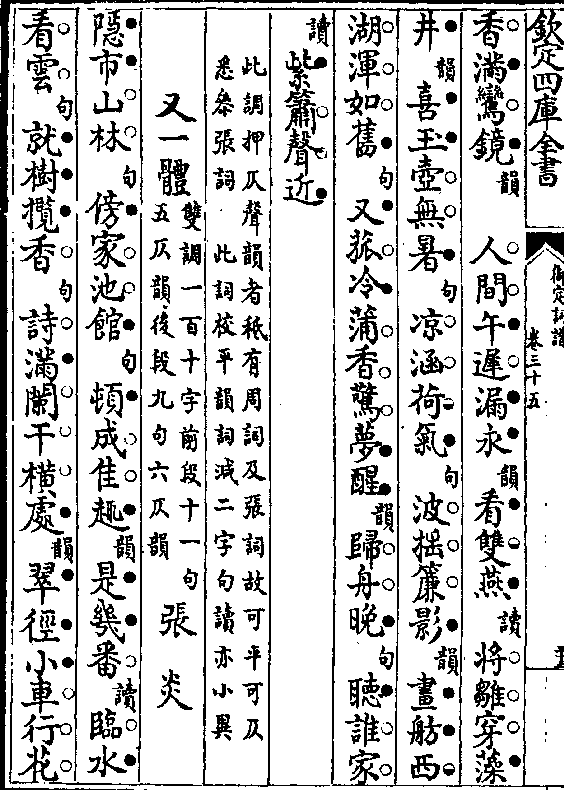 欽定四庫全書
御定詞譜
卷三十五
香滿鸞鏡韻　人間午遲漏永韻看雙燕讀將雛穿藻
井韻喜玉壺無暑句凉涵荷氣句波揺簾影韻畫舫西
湖渾如舊句又菰冷蒲香驚夢醒韻歸舟晚句聽誰家
讀紫簫聲近
此調押仄聲韻者秪有周詞及張詞故可平可仄
悉叅張詞　此詞校平韻詞減二字句讀亦小異
又一體
雙調一百十字前段十一句
五仄韻後段九句六仄韻
張炎
隱市山林句傍家池館句頓成佳趣韻是幾番讀臨水
看雲句就樹攬香句詩滿闌干橫處韻翠徑小車行花